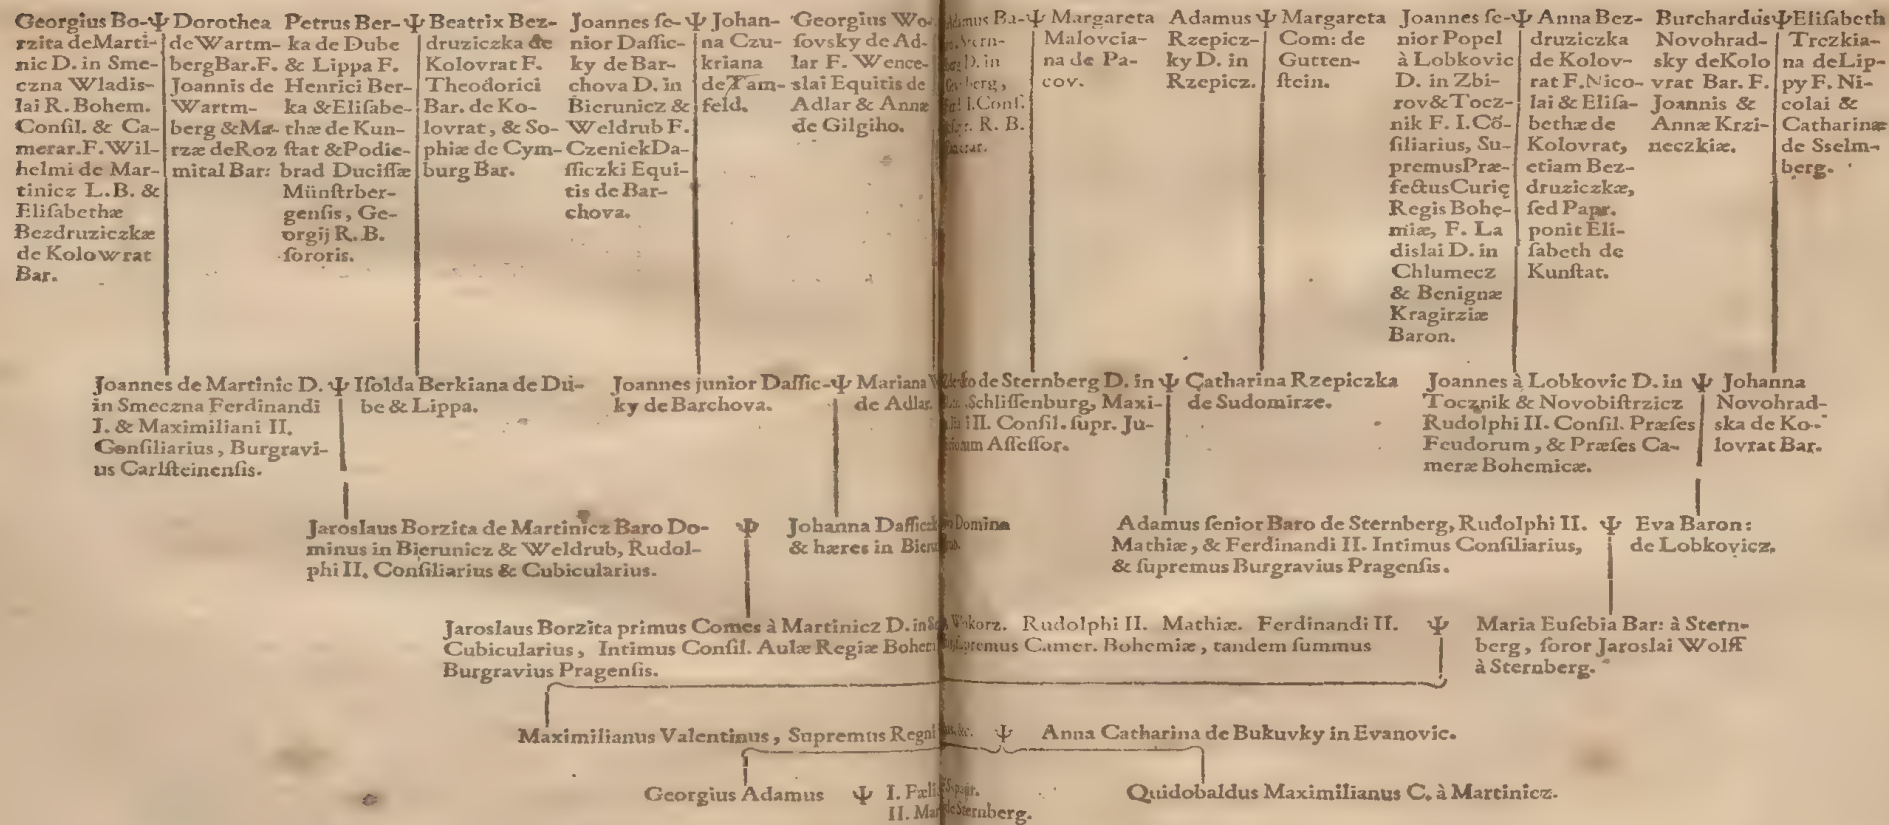 Georgius Bo-Ψ
rzita deMarti-
nic D. in Sme-
czna Wladis-
lai R. Bohem.
Conſil. & Ca-
merar.F.Wil-
helmi de Mar-
tinicz L.B. &
Eliſabethæ
Bezdruziczkæ
de Kolowrat
Bar.
Dorothea
deWartm-
bergBar.F.
Joannis de
Wartm-
berg &Ma-
rzæ deRoz
mital Bar:
Petrus Ber-Ψ
ka de Dube
& Lippa F.
Henrici Ber-
ka &Eliſabe-
thæ de Kun-
ſtat &Podie-
brad Duciſſæ
Münſtrber-
genſis, Ge-
orgij R.B.
ſororis.
Beatrix Bez-
druziczka de
Kolovrat F.
Theodorici
Bar. de Ko-
lovrat, & So-
phiæ de Cym-
burg Bar.
Joannes ſe-Ψ
nior Daſſic-
ky de Bar-
chova D. in
Bierunicz &
Weldrub F.
CzeniekDa-
ſſiczki Equi-
tis de Bar-
chova.
Johan-
na Czu-
kriana
deTam-
feld.
Georgius Wo-
ſovsky de Ad-
lar F. Wence-
slai Equitis de
Adlar & Annæ
de Gilgiho.
Ba-Ψ
D. in
I.Conſ.
R. B.
Margareta
Malovcia-
na de Pa-
cov.
Adamus Ψ
Rzepicz-
ky D. in
Rzepicz.
Margareta
Com: de
Gutten-
ſtein.
Joannes ſe-Ψ
nior Popel
à Lobkovic
D. in Zbi-
rov&Tocz-
nik F. I.Cõ-
ſiliarius, Su-
premusPræ-
fectusCurię
Regis Bohę-
miæ, F. La
dislai D. in
Chlumecz
& Benignæ
Kragirziæ
Baron.
Anna Bez-
druziczka
de Kolov-
rat F.Nico-
lai & Eliſa-
bethæ de
Kolovrat,
etiam Bez-
druziczkæ,
ſed Papr.
ponit Eli-
ſabeth de
Kunſtat.
BurchardusΨ
Novohrad-
sky deKolo
vrat Bar. F.
Joannis &
Annæ Krzi-
neczkiæ.
Eliſabeth
Trczkia-
na deLip-
py F. Ni-
colai &
Catharinæ
de Sselm-
berg.
Joannes de Martinic D. Ψ
in Smeczna Ferdinandi
I. & Maximiliani II.
Conſiliarius, Burgravi-
us Carlſteinenſis.
Iſolda Berkiana de Du-
be & Lippa.
Joannes junior Daſſic-Ψ
ky de Barchova.
Mariana
de Adlar.
de Sternberg D. in Ψ
Schliſſenburg, Maxi-
II. Conſil. ſupr. Ju-
Aſſeſſor.
Catharina Rzepiczka
de Sudomirze.
Joannes à Lobkovic D. in Ψ
Tocznik & Novobiſtrzicz
Rudolphi II. Conſil. Præſes
Feudorum, & Præſes Ca-
meræ Bohemicæ.
Johanna
Novohrad-
ska de Ko-
lovrat Bar.
Jaroslaus Borzita de Martinicz Baro Do- Ψ
minus in Bierunicz & Weldrub, Rudol-
phi II. Conſiliarius & Cubicularius.
Johanna Domina
& hæres in
Adamus ſenior Baro de Sternberg, Rudolphi II. Ψ
Mathiæ, & Ferdinandi II. Intimus Conſiliarius,
& ſupremus Burgravius Pragenſis.
Eva Baron:
de Lobkovicz.
Jaroslaus Borzita primus Comes à Martinicz D. in Rudolphi II. Mathiæ. Ferdinandi II. Ψ
Cubicularius, Intimus Conſil. Aulæ Regiæ Camer. Bohemiæ, tandem ſummus
Burgravius Pragenſis.
Maria Euſebia Bar: à Stern-
berg, ſoror Jaroslai Wolff
à Sternberg.
Maximilianus Valentinus, Supremus Regni Ψ Anna Catharina de Bukuvky in Evanovic.
Georgius Adamus Ψ I.
II.
Quidobaldus Maximilianus C. à Martinicz.